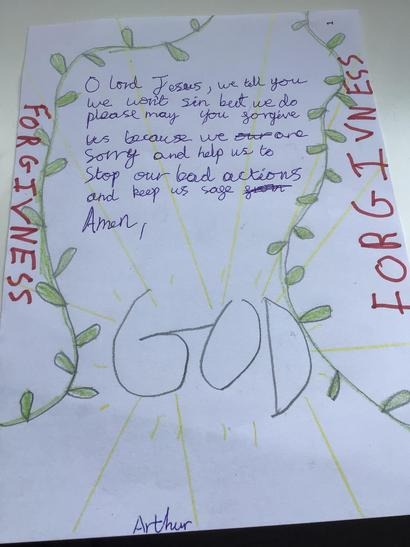 1
O lord Jesus, we tell you
we wont sin but we do
please may you forgive
us because we our are
sorry and help us to
stop our bad actions
and keep us sage
Amen,
FORGIVNESS
FORGIVNESS
GOD
Arthur